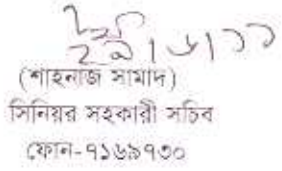 ২৯/৬/১১
(শাহনাজ সামাদ)
সিনিয়র সহকারী সচিব
ফোন-৭১৬৯৭৩০